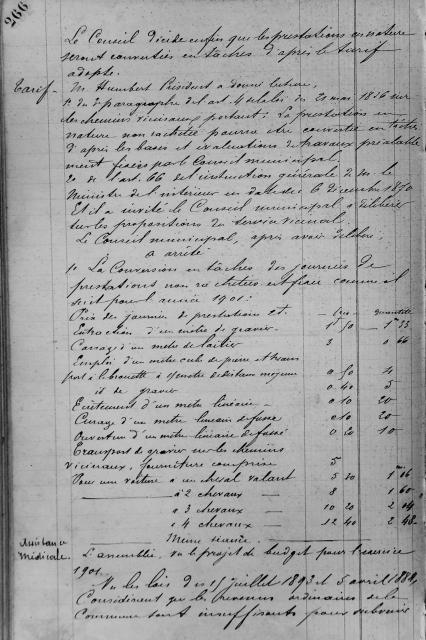 266
Le Conseil décide enfin que les prestations en nature
seront converties en tâches d'après le tarif
adopté.
Tarif - M. Humbert Président a donné lecture,
1° du 2e paragraphe de l'art. 4 de la loi du 21 mai 1836 sur
les chemins vicinaux portant : La prestation en
nature non rachetée pourra être convertie en tâches
d'après les bases et évaluations de travaux préalable
ment fixées par le Conseil municipal.
2° de l'art. 66 de l'instruction générale de M. le
Ministre de l'intérieur en date du 6 décembre 1870
Et il a invité le Conseil municipal à délibérer
sur les propositions du service vicinal.
Le Conseil municipal, après avoir délibéré,
a arrêté
1° La Conversion en tâches des journées de
prestations non rachetées est fixée comme il
suit pour l'année 1901 :
Prix des journées de prestations et : quantités
Extraction d'un mètre de gravier - 1 50 - 1 33
Cassage d'un mètre de laitier 3 0 66
Emploi d'un mètre cube de pierre et trans
port à la brouette à 1 mètre de distance moyenne 0 50 4
id de gravier 0 40 5
Ecrêtement d'un mètre linéaire - 0 10 20
Curage d'un mètre linéaire de fossé 0 10 20
Ouverture d'un mètre linéaire de fossé 0 20 10
Transport de gravier sur les chemins
vicinaux, fourniture comprise 5
Pour une voiture à un cheval valant 5 30 1 06
à 2 chevaux - 8 1 60
à 3 chevaux 10 20 2 04
à 4 chevaux - 12 40 2 48
Même séance.
Assistance médicale. L'assemblée, vu le projet de budget pour l'exercice
1901.
Vu les lois des 15 juillet 1893 et 5 avril 1884,
Considérant que les revenus ordinaires de la
Commune sont insuffisants pour subvenir